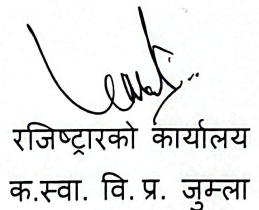 रजिष्ट्रारको कार्यालय
क.स्वा. वि. प्र. जुम्ला